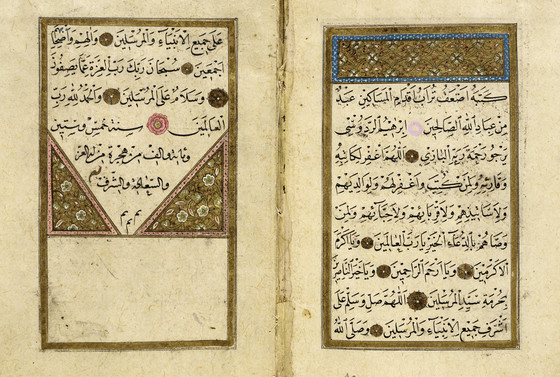 كتبه اضعف تراب اقدام المساكين عبد
من عباد الله الصالحين ابرهيم الردوسي
يرجو رحمة ربه الباري اللهم اغفر لكاتبه
وقارئه ولمن كتب له واغفر لهم ولوالديهم
ولاساتيدهم ولاقربائهم ولاحبائهم ولمن
وصاهم بالدعاء الخير يا رب العالمين ويا اكرم
الاكرمين ويا ارحم الراحمين ويا خير الناصرين
بحرمة سيد المرسلين اللهم صل وسلم على
اشرف جميع الانبياء والمرسلين وصلى الله
على جميع الانبياء والمرسلين والهم واصحابهم
اجمعين سبحان ربك رب العزة عما يصفون
وسلام على المرسلين والحمد لله رب
العالمين سنة خمس وستين
ومائة والف من هجرة من له العز
والسعادة والشرف
م م م